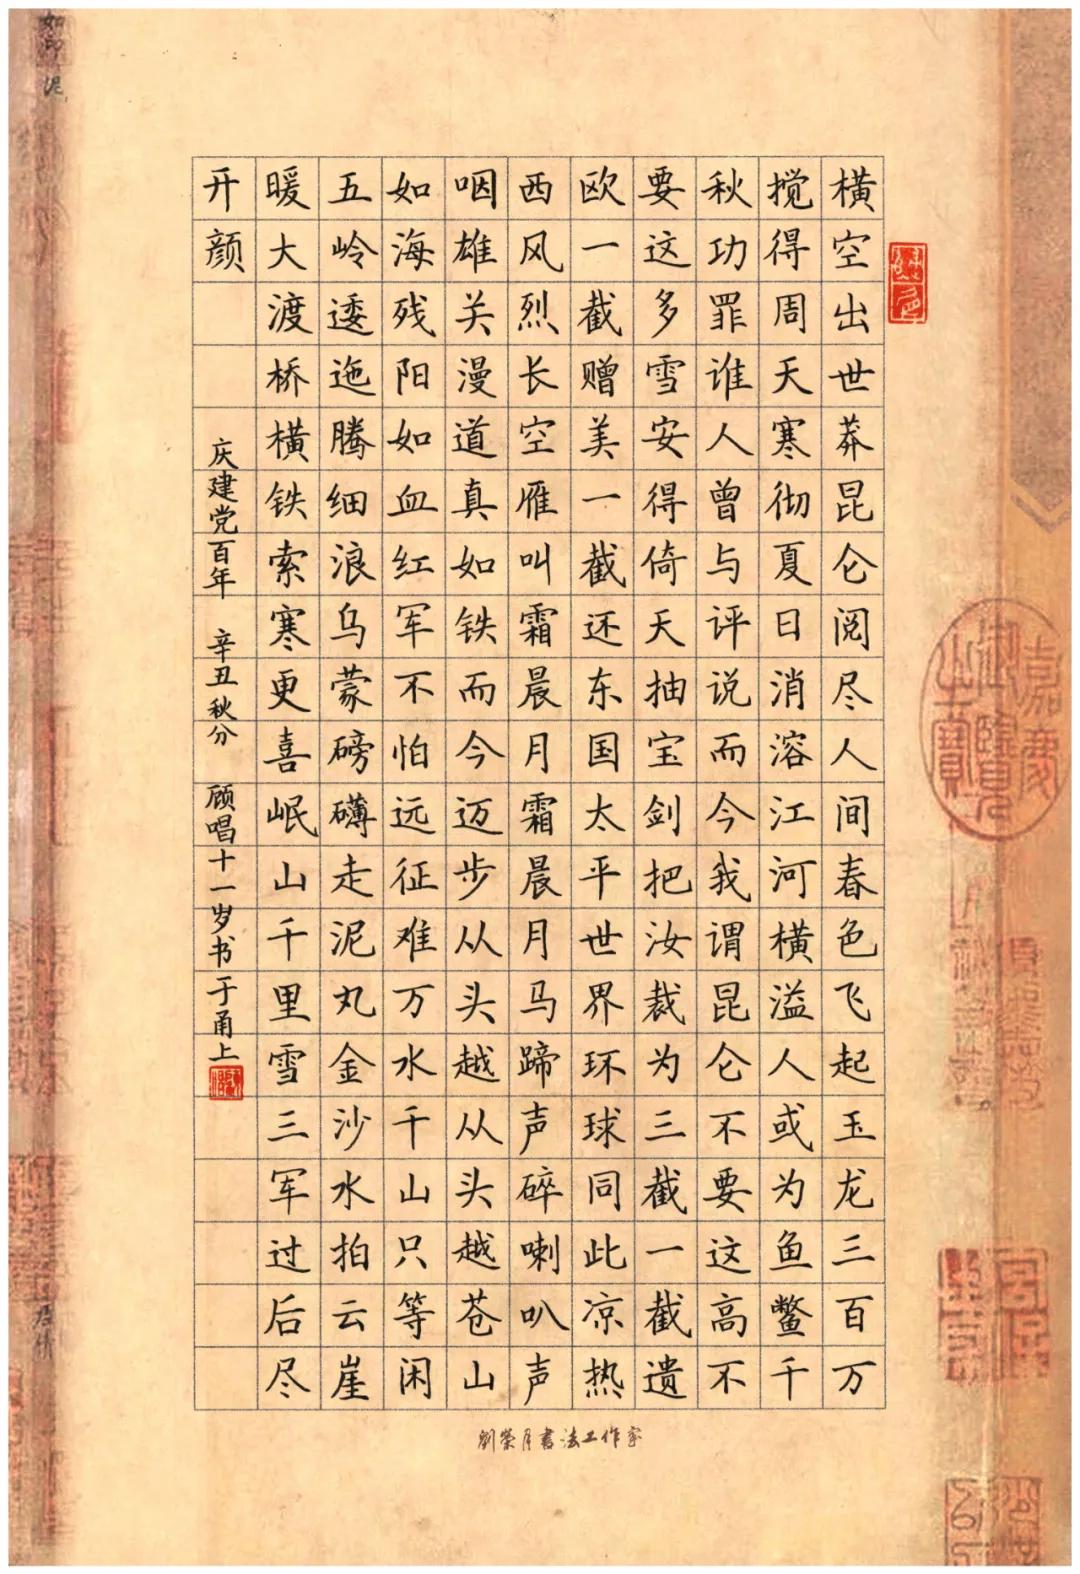 横空出世莽昆仑阅尽人间春色飞起玉龙三百万
搅得周天寒彻夏日消溶江河横溢人或为鱼鳖千
秋功罪谁人曾与评说而今我谓昆仑不要这高不
要这多雪安得倚天抽宝剑把汝裁为三截一截遗
欧一截赠美一截还东国太平世界环球同此凉热
西风烈长空雁叫霜晨月霜晨月马蹄声碎喇叭声
咽雄关漫道真如铁而今迈步从头越从头越苍山
如海残阳如血红军不怕远征难万水千山只等闲
五岭逶迤腾细浪乌蒙磅礴走泥丸金沙水拍云崖
暖大渡桥横铁索寒更喜岷山千里雪三军过后尽
开颜
庆建党百年 辛丑秋分 顾唱十一岁书于甬上
劉榮月書法工作室